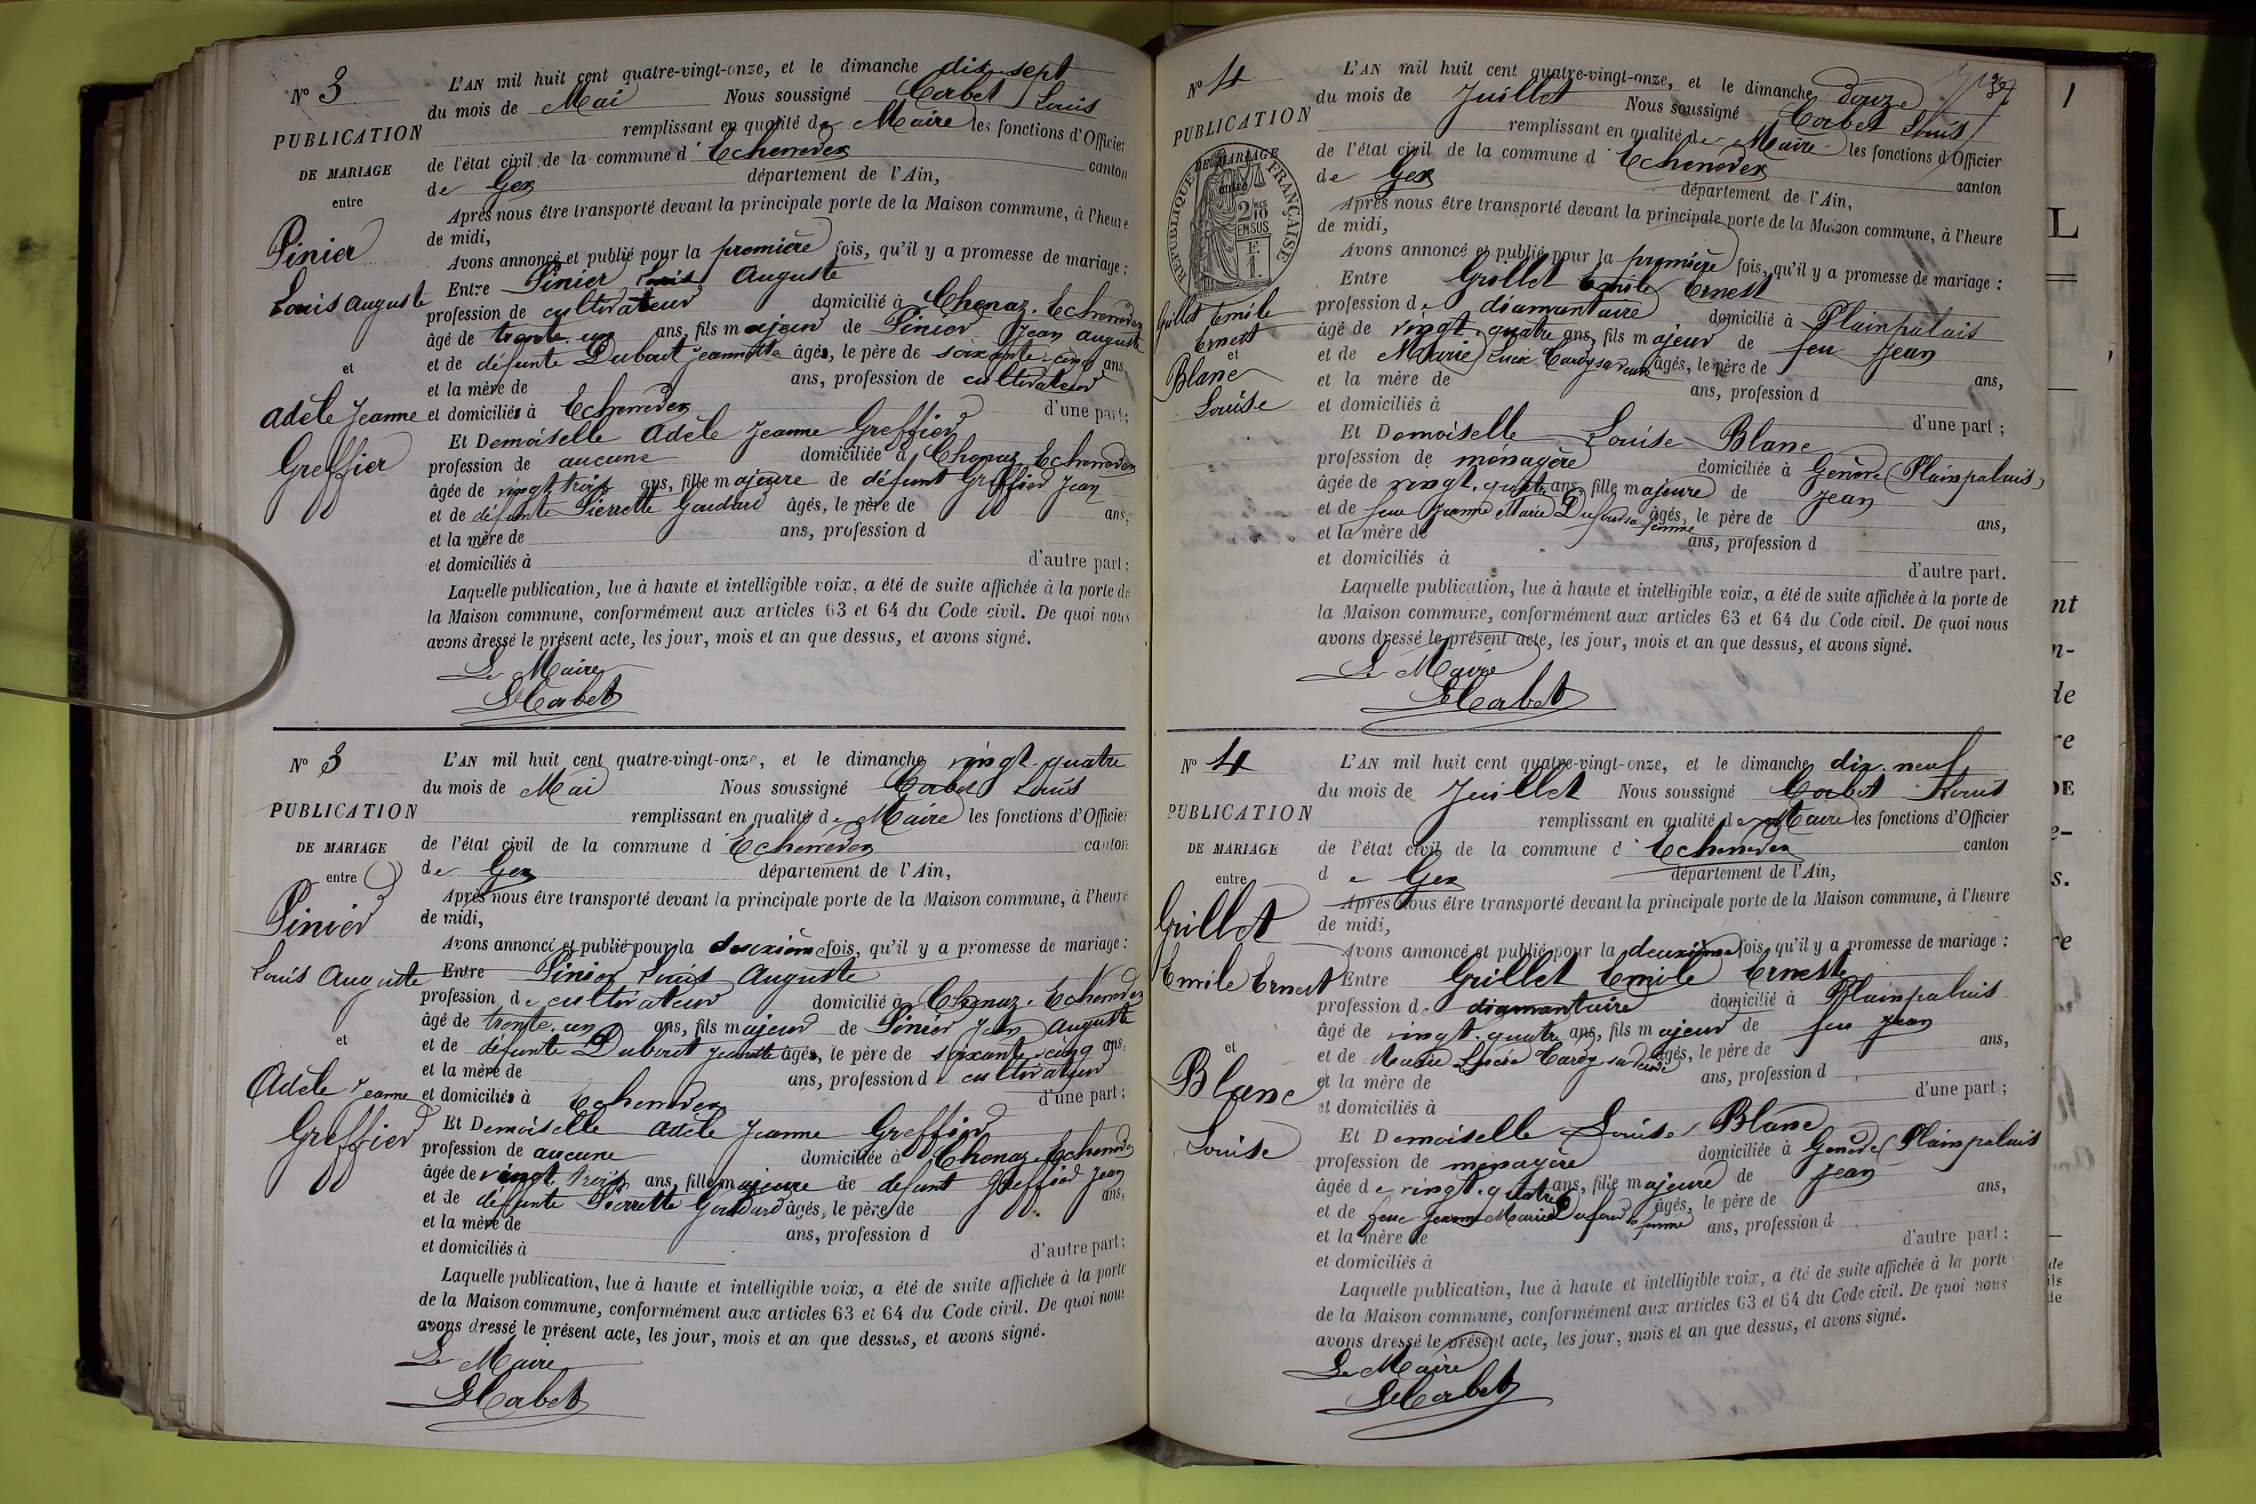 N° 3
PUBLICATION
DE MARIAGE
entre
Pinier
Louis Auguste
et
Adèle Jeanne
Greffier
L'AN mil huit cent quatre-vingt-onze, et le dimanche dix-sept
du mois de Mai Nous soussigné Corbet Louis
remplissant en qualité de Maire les fonctions d'Officier
de l'état civil de la commune d'Echenevex canton
de Gex département de l'Ain,
Après nous être transporté devant la principale porte de la Maison commune, à l'heure
de midi,
Avons annoncé et publié pour la première fois, qu'il y a promesse de mariage :
Entre Pinier Louis Auguste
profession de cultivateur domicilié à Chenaz. Echenevex
âgé de trente-un ans, fils majeur de Pinier Jean Auguste
et de défunte Dubout Jeannette âgés, le père de soixante-cinq ans,
et la mère de ans, profession de cultivateur
et domiciliés à Echenevex d'une part;
Et Demoiselle Adèle Jeanne Greffier
profession de aucune domiciliée à Chenaz Echenevex
âgée de vingt trois ans, fille majeure de défunt Greffier Jean
et de défunte Pierrette Goudard âgés, le père de ans,
et la mère de ans, profession d
et domiciliés à d'autre part:
Laquelle publication, lue à haute et intelligible voix, a été de suite affichée à la porte de
la Maison commune, conformément aux articles 63 et 64 du Code civil. De quoi nous
avons dressé le présent acte, les jour, mois et an que dessus, et avons signé.
Le Maire
LCorbet
N° 3
PUBLICATION
DE MARIAGE
entre
Pinier
Louis Auguste
et
Adèle Jeanne
Greffier
L'AN mil huit cent quatre-vingt-onze, et le dimanche vingt-quatre
du mois de Mai Nous soussigné Corbet Louis
remplissant en qualité de Maire les fonctions d'Officier
de l'état civil de la commune d'Echenevex canton
de Gex département de l'Ain,
Après nous être transporté devant la principale porte de la Maison commune, à l'heure
de midi,
Avons annoncé et publié pour la deuxième fois, qu'il y a promesse de mariage :
Entre Pinier Louis Auguste
profession de cultivateur domicilié à Chenaz. Echenevex
âgé de trente-un ans, fils majeur de Pinier Jean Auguste
et de défunte Dubout Jeannette âgés, le père de soixante-cinq ans,
et la mère de ans, profession de cultivateur
et domiciliés à Echenevex d'une part;
Et Demoiselle Adèle Jeanne Greffier
profession de aucune domiciliée à Chenaz. Echenevex
âgée de vingt trois ans, fille majeure de défunt Greffier Jean
et de défunte Pierrette Goudard âgés, le père de ans,
et la mère de ans, profession d
et domiciliés à d'autre part;
Laquelle publication, lue à haute et intelligible voix, a été de suite affichée à la porte
de la Maison commune, conformément aux articles 63 et 64 du Code civil. De quoi nous
avons dressé le présent acte, les jour, mois et an que dessus, et avons signé.
Le Maire
LCorbet
N° 4
PUBLICATION
DE MARIAGE
entre
RÉPUBLIQUE FRANÇAISE
Grillet Emile
Ernest
et
Blanc
Louise
L'AN mil huit cent quatre-vingt-onze, et le dimanche douze
du mois de Juillet Nous soussigné Corbet Louis
remplissant en qualité de Maire les fonctions d'Officier
de l'état civil de la commune d'Echenevex canton
de Gex département de l'Ain,
Après nous être transporté devant la principale porte de la Maison commune, à l'heure
de midi,
Avons annoncé et publié pour la première fois, qu'il y a promesse de mariage :
Entre Grillet Emile Ernest
profession de diamantaire domicilié à Plainpalais
âgé de vingt-quatre ans, fils majeur de feu Jean
et de Marie Lucie Cardy sa veuve âgés, le père de ans,
et la mère de ans, profession d
et domiciliés à d'une part ;
Et Demoiselle Louise Blanc
profession de ménagère domiciliée à Genève (Plainpalais)
âgée de vingt-quatre ans, fille majeure de Jean
et de feue Jeanne Marie Dufour sa femme âgés, le père de ans,
et la mère de ans, profession d
et domiciliés à d'autre part.
Laquelle publication, lue à haute et intelligible voix, a été de suite affichée à la porte de
la Maison commune, conformément aux articles 63 et 64 du Code civil. De quoi nous
avons dressé le présent acte, les jour, mois et an que dessus, et avons signé.
Le Maire
LCorbet
N° 4
PUBLICATION
DE MARIAGE
entre
Grillet
Emile Ernest
et
Blanc
Louise
L'AN mil huit cent quatre-vingt-onze, et le dimanche dix-neuf
du mois de Juillet Nous soussigné Corbet Louis
remplissant en qualité de Maire les fonctions d'Officier
de l'état civil de la commune d'Echenevex canton
de Gex département de l'Ain,
Après nous être transporté devant la principale porte de la Maison commune, à l'heure
de midi,
Avons annoncé et publié pour la deuxième fois, qu'il y a promesse de mariage :
Entre Grillet Emile Ernest
profession de diamantaire domicilié à Plainpalais
âgé de vingt-quatre ans, fils majeur de feu Jean
et de Marie Lucie Cardy sa veuve âgés, le père de ans,
et la mère de ans, profession d
et domiciliés à d'une part ;
Et Demoiselle Louise Blanc
profession de ménagère domiciliée à Genève (Plainpalais
âgée de vingt-quatre ans, fille majeure de Jean
et de feue Jeanne Marie Dufour sa femme âgés, le père de ans,
et la mère de ans, profession d
et domiciliés à d'autre part ;
Laquelle publication, lue à haute et intelligible voix, a été de suite affichée à la porte
de la Maison commune, conformément aux articles 63 et 64 du Code civil. De quoi nous
avons dressé le présent acte, les jour, mois et an que dessus, et avons signé.
Le Maire
LCorbet